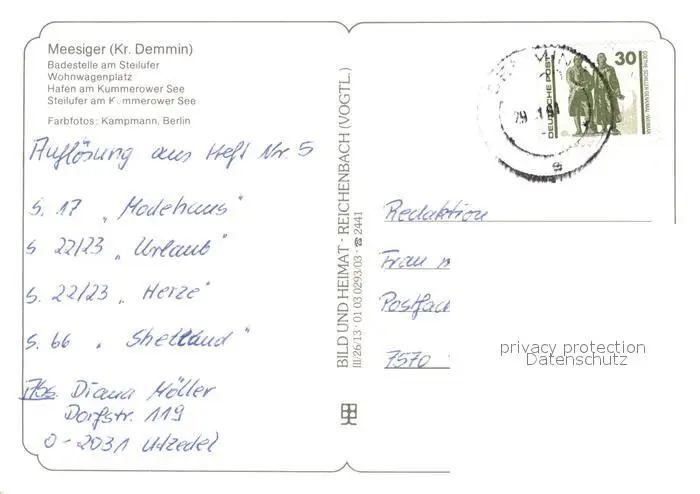 Meesiger (Kr. Demmin)
Badestelle am Steilufer
Wohnwagenplatz
Hafen am Kummerower See
Steilufer am Kummerower See
Farbfotos: Kampmann, Berlin
Auflösung aus Heft Nr. 5
S. 17 „Modehaus"
S 22/23 „Urlaub"
S. 22/23 „Herze"
S. 66 „Shetland"
Abs. Diana Möller
Dorfstr. 119
O-2031 Utzedel
BILD UND HEIMAT · REICHENBACH (VOGTL.)
III/26/13 · 01 03 0293/03 · ☎ 2441
DEUTSCHE POST
30
29
Redaktion
Frau
Postfach
7570
privacy protection
Datenschutz